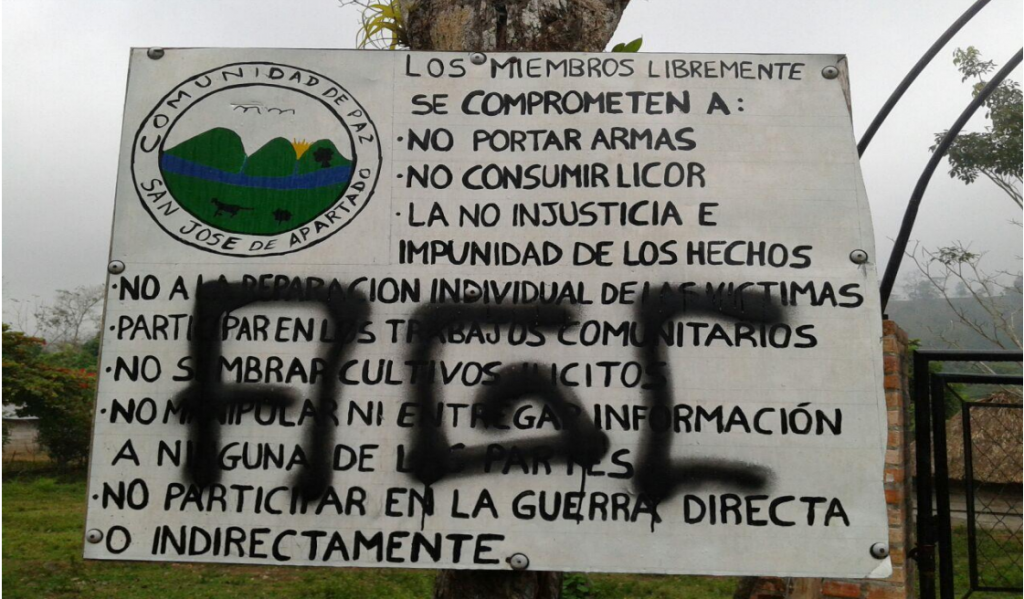 COMUNIDAD DE PAZ
SAN JOSE DE APARTADO
LOS MIEMBROS LIBREMENTE
SE COMPROMETEN A:
·NO PORTAR ARMAS
·NO CONSUMIR LICOR
·LA NO INJUSTICIA E
IMPUNIDAD DE LOS HECHOS
·NO A LA REPARACION INDIVIDUAL DE LAS VICTIMAS
·PARTICIPAR EN LOS TRABAJOS COMUNITARIOS
·NO SEMBRAR CULTIVOS ILICITOS
·NO MANIPULAR NI ENTREGAR INFORMACIÓN
A NINGUNA DE LAS PARTES
·NO PARTICIPAR EN LA GUERRA DIRECTA
O INDIRECTAMENTE.
AGC